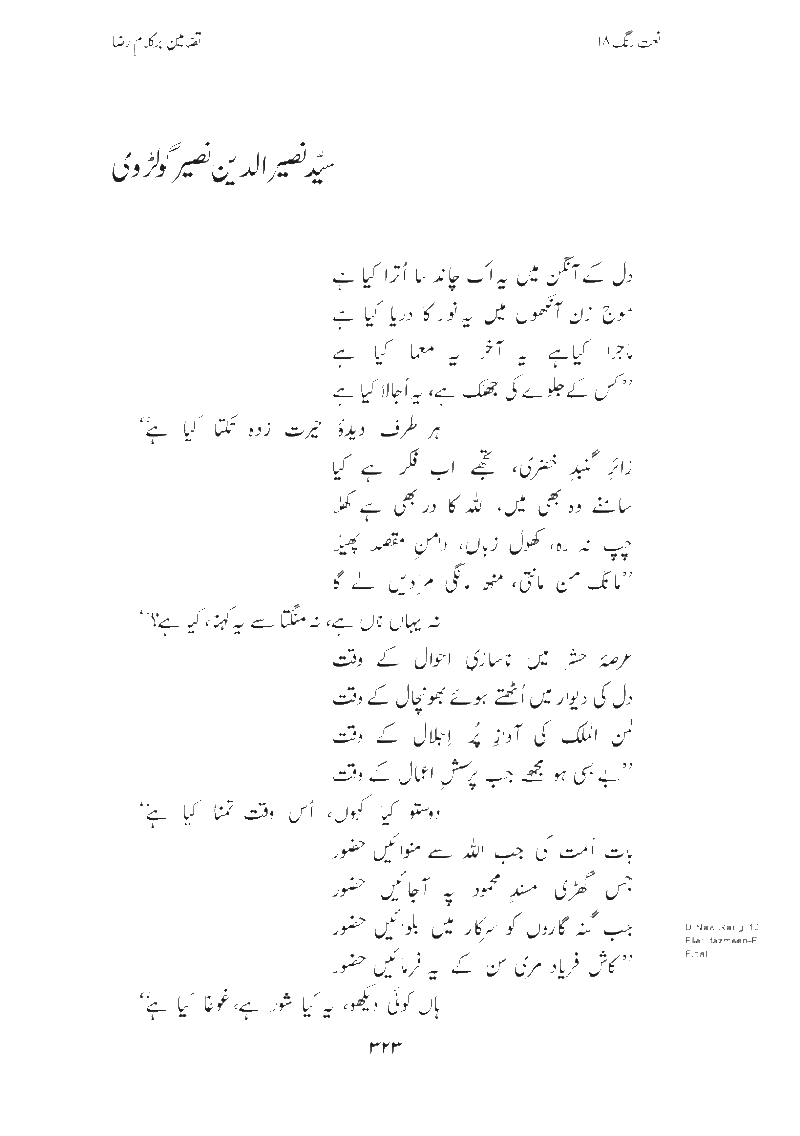 نعت رنگ ۱۸
تضامین بر کلامِ رضا
سیّد نصیر الدین نصیر گولڑوی
دل کے آنگن میں یہ اک چاند سا اُترا کیا ہے
موج زن آنکھوں میں یہ نور کا دریا کیا ہے
ماجرا کیا ہے یہ آخر یہ معما کیا ہے
”کس کے جلوے کی جھلک ہے، یہ اُجالا کیا ہے
ہر طرف دیدۂ حیرت زدہ تکتا کیا ہے“
زائرِ گنبدِ خضریٰ، تجھے اب فکر ہے کیا
سامنے وہ بھی ہیں، اللہ کا در بھی ہے کھلا
چپ نہ رہ، کھول زباں، دامنِ مقصد پھیلا
”مانگ من مانتی، منھ مانگی مرادیں لے گا
نہ یہاں ناں ہے، نہ منگتا سے یہ کہنا، کیا ہے؟“
عرصۂ حشر میں ناسازیِ احوال کے وقت
دل کی دیوار میں اُٹھتے ہوئے بھونچال کے وقت
لمن الملک کی آوازِ پُر اجلال کے وقت
”بے بسی ہو مجھے جب پرسشِ اعمال کے وقت
دوستو کیا کہوں، اُس وقت تمنا کیا ہے“
بات اُمت کی جب اللہ سے منوائیں حضور
جس گھڑی مسندِ محمود پہ آجائیں حضور
جب گنہ گاروں کو سرکار میں بلوائیں حضور
”کاش فریاد مری سن کے یہ فرمائیں حضور
ہاں کوئی دیکھو، یہ کیا شور ہے، غوغا کیا ہے“
۳۲۳